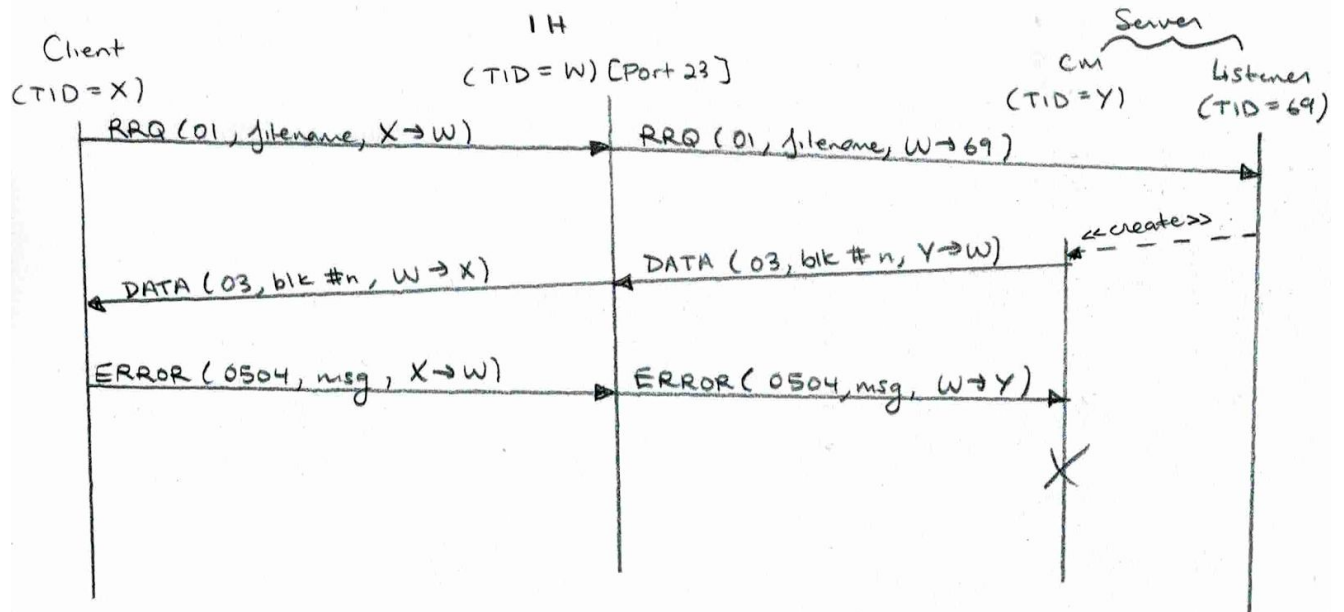 Client
(TID = X)
IH
(TID = W) [Port 23]
Server
CM
(TID = Y)
Listener
(TID = 69)
RRQ (01, filename, X→W)
RRQ (01, filename, W→69)
<<create>>
DATA (03, blk #n, Y→W)
DATA (03, blk #n, W→X)
ERROR (0504, msg, X→W)
ERROR (0504, msg, W→Y)
X